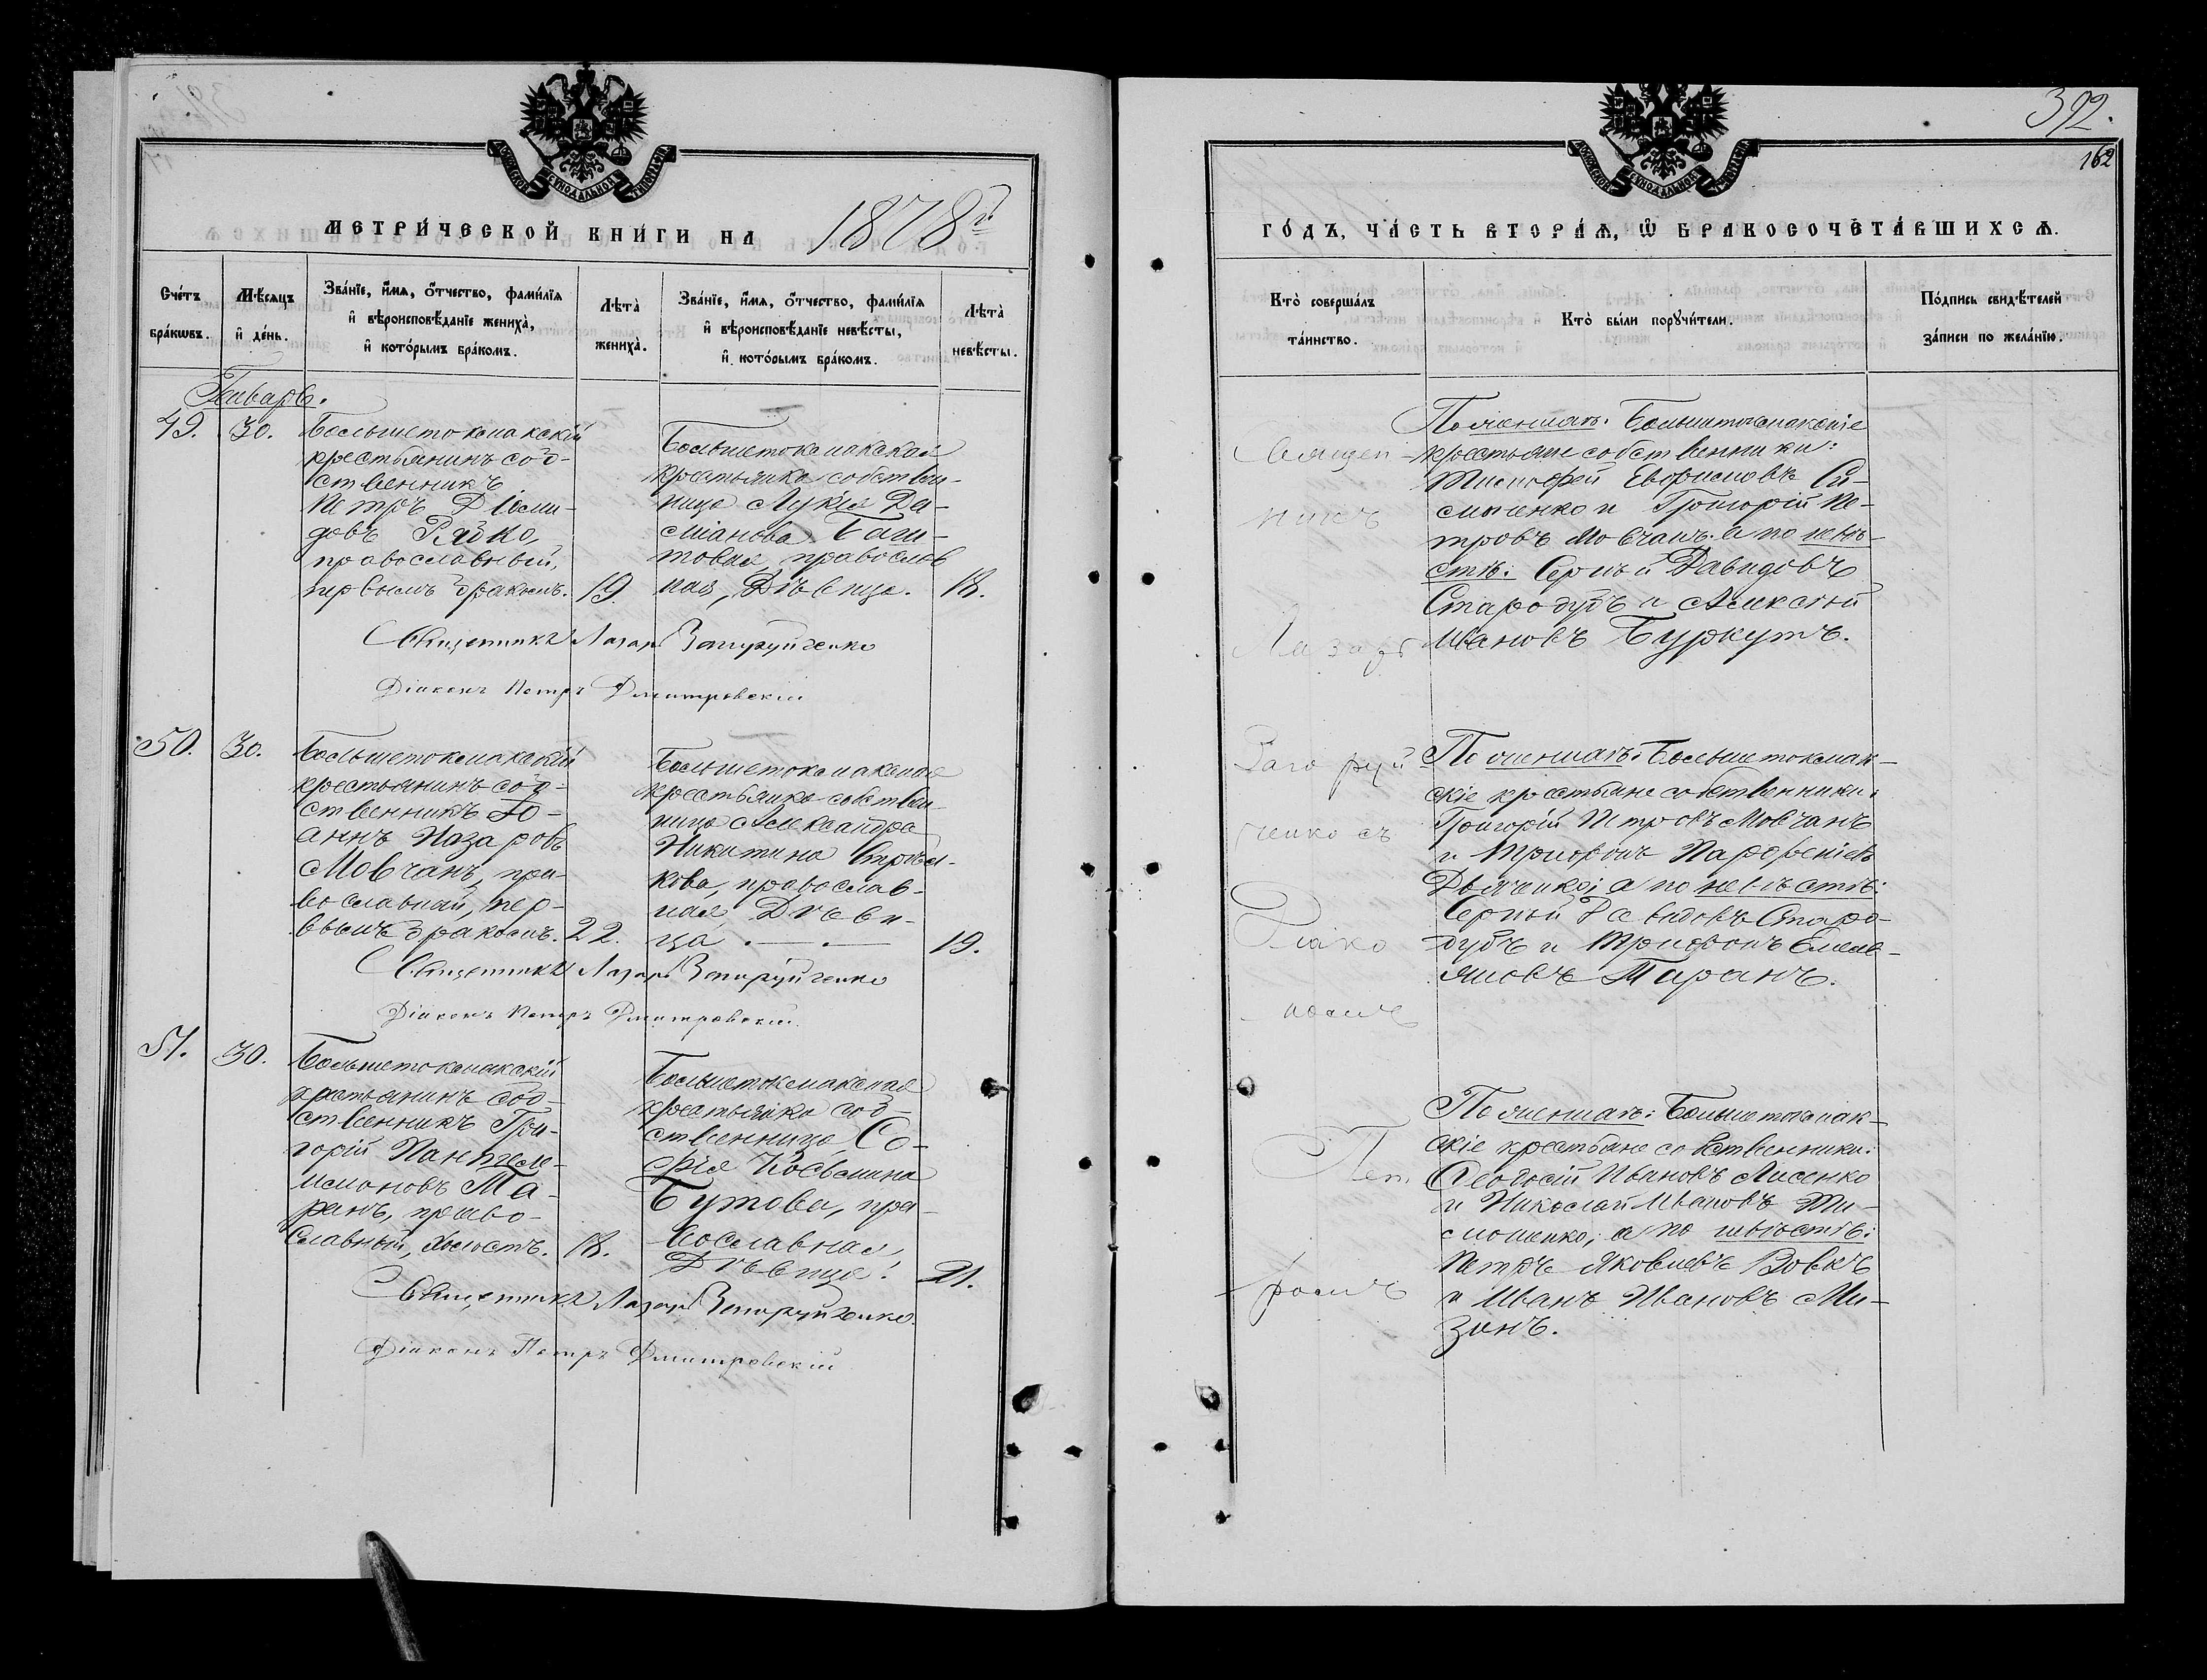 МЕТРИ́ЧЕСКОЙ КНИ́ГИ НА 1878 г.
Сче́тъ бра́кшвъ.
Мѣ́сяцъ и҆ де́нь.
Зва́нїе, и҆́мя, ѻ҆́тчество, фами́лїя и҆ вѣроисповѣ́данїе жениха̀, и҆ кото́рымъ бра́комъ.
Лѣ́та̀ жениха̀.
Зва́нїе, и҆́мя, ѻ҆́тчество, фами́лїя и҆ вѣроисповѣ́данїе невѣ́сты, и҆ кото́рымъ бра́комъ.
Лѣ́та̀ невѣ́сты.
Генварь.
49.
30.
Большетокмакскій
крестьянинъ соб-
ственникъ
Петръ Діоми-
довъ Рябко,
православный,
первымъ бракомъ.
19.
Большетокмакская
крестьянка собствен-
ница Лукія Да-
міанова
товая, православ
ная, Дѣвица.
18.
Священникъ Лазарь Загоруйченко
Діаконъ Петръ Дмитровскій
50.
30.
Большетокмакскій
крестьянинъ соб-
ственникъ Іо-
аннъ Назаровъ
Мовчанъ, пра-
вославный, пер-
вымъ бракомъ.
22.
Большетокмакская
крестьянка собствен-
ница Александра
Никитина
кова, православ-
ная, Дѣви-
ца.
19.
Священникъ Лазарь Загоруйченко
Діаконъ Петръ Дмитровскій
51.
30.
Большетокмакскій
крестьянинъ соб-
ственникъ Гри-
горій Пантеле-
имоновъ Та-
ранъ, право-
славный, холостъ.
18.
Большетокмакская
крестьянка соб-
ственница Со-
фія Косьмина
Бутова, пра-
вославная,
Дѣвица.
21.
Священникъ Лазарь Загоруйченко.
Діаконъ Петръ Дмитровскій
392.
162
ГО́ДЪ, ЧА́СТЬ ВТОРА́Ѧ, Ѽ БРАКОСОЧЕТА́ВШИХСѦ.
Кто̀ соверша́лъ та́инство.
Кто̀ бы́ли порꙋчи́тели.
По́дпись свидѣ́телей за́писи по жела́нїю.
Священ-
никъ
Лазарь
Загоруй
ченко съ
Діако
номъ
Пет
ромъ
По женихѣ: Большетокмакскіе
крестьяне собственники:
Тимофей
и Григорій Пе-
тровъ Мовчанъ. а по невѣ-
стѣ: Сергѣй Давидовъ
Стародубъ и Алексѣй
Ивановъ Буркутъ.
По женихѣ: Большетокмак-
скіе крестьяне собственники:
Григорій Петровъ Мовчанъ
и Трифонъ Парфеніевъ
Дьяченко; а по невѣстѣ:
Сергѣй Давидовъ Старо-
дубъ и Трифонъ Емель-
яновъ Таранъ.
По женихѣ: Большетокмак-
скіе крестьяне собственники:
Ѳеодосій Ивановъ Лисенко
и Николай Ивановъ Ти-
мошенко, а по невѣстѣ:
Петръ Яковлевъ Вовкъ
и Иванъ Ивановъ Ми-
зинъ.